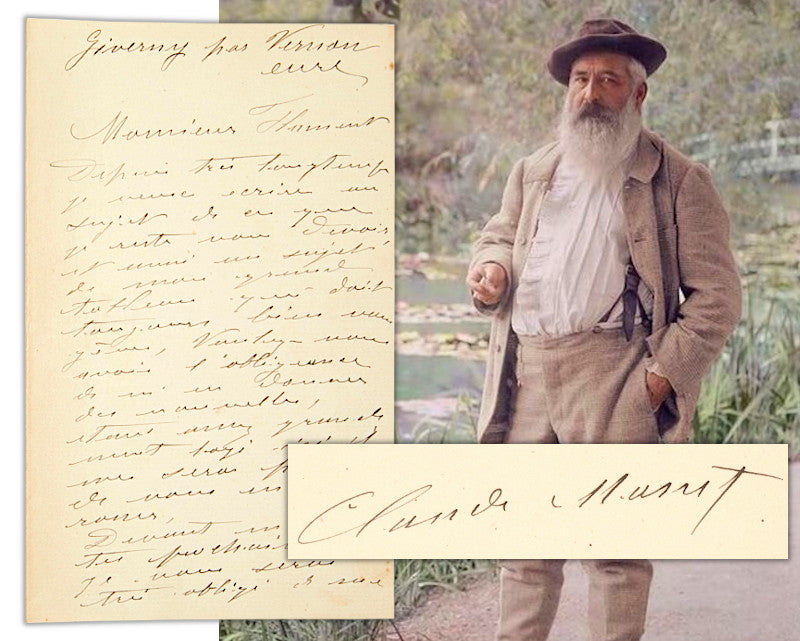 Giverny par Vernon
eure
Monsieur Flament
Depuis très longtemps
je veux ecrire au
sujet de ce que
je reste vous devoir
et aussi au sujet
de mon grand
tableau qui doit
toujours bien vous
gêner, Veuillez-vous
avoir l'obligeance
de m'en donner
des nouvelles,
étant assez grande
ment logé
me sera
de vous en
rasser,
Devant
tes prochai
je vous serais
très obligé de me
Claude Monet